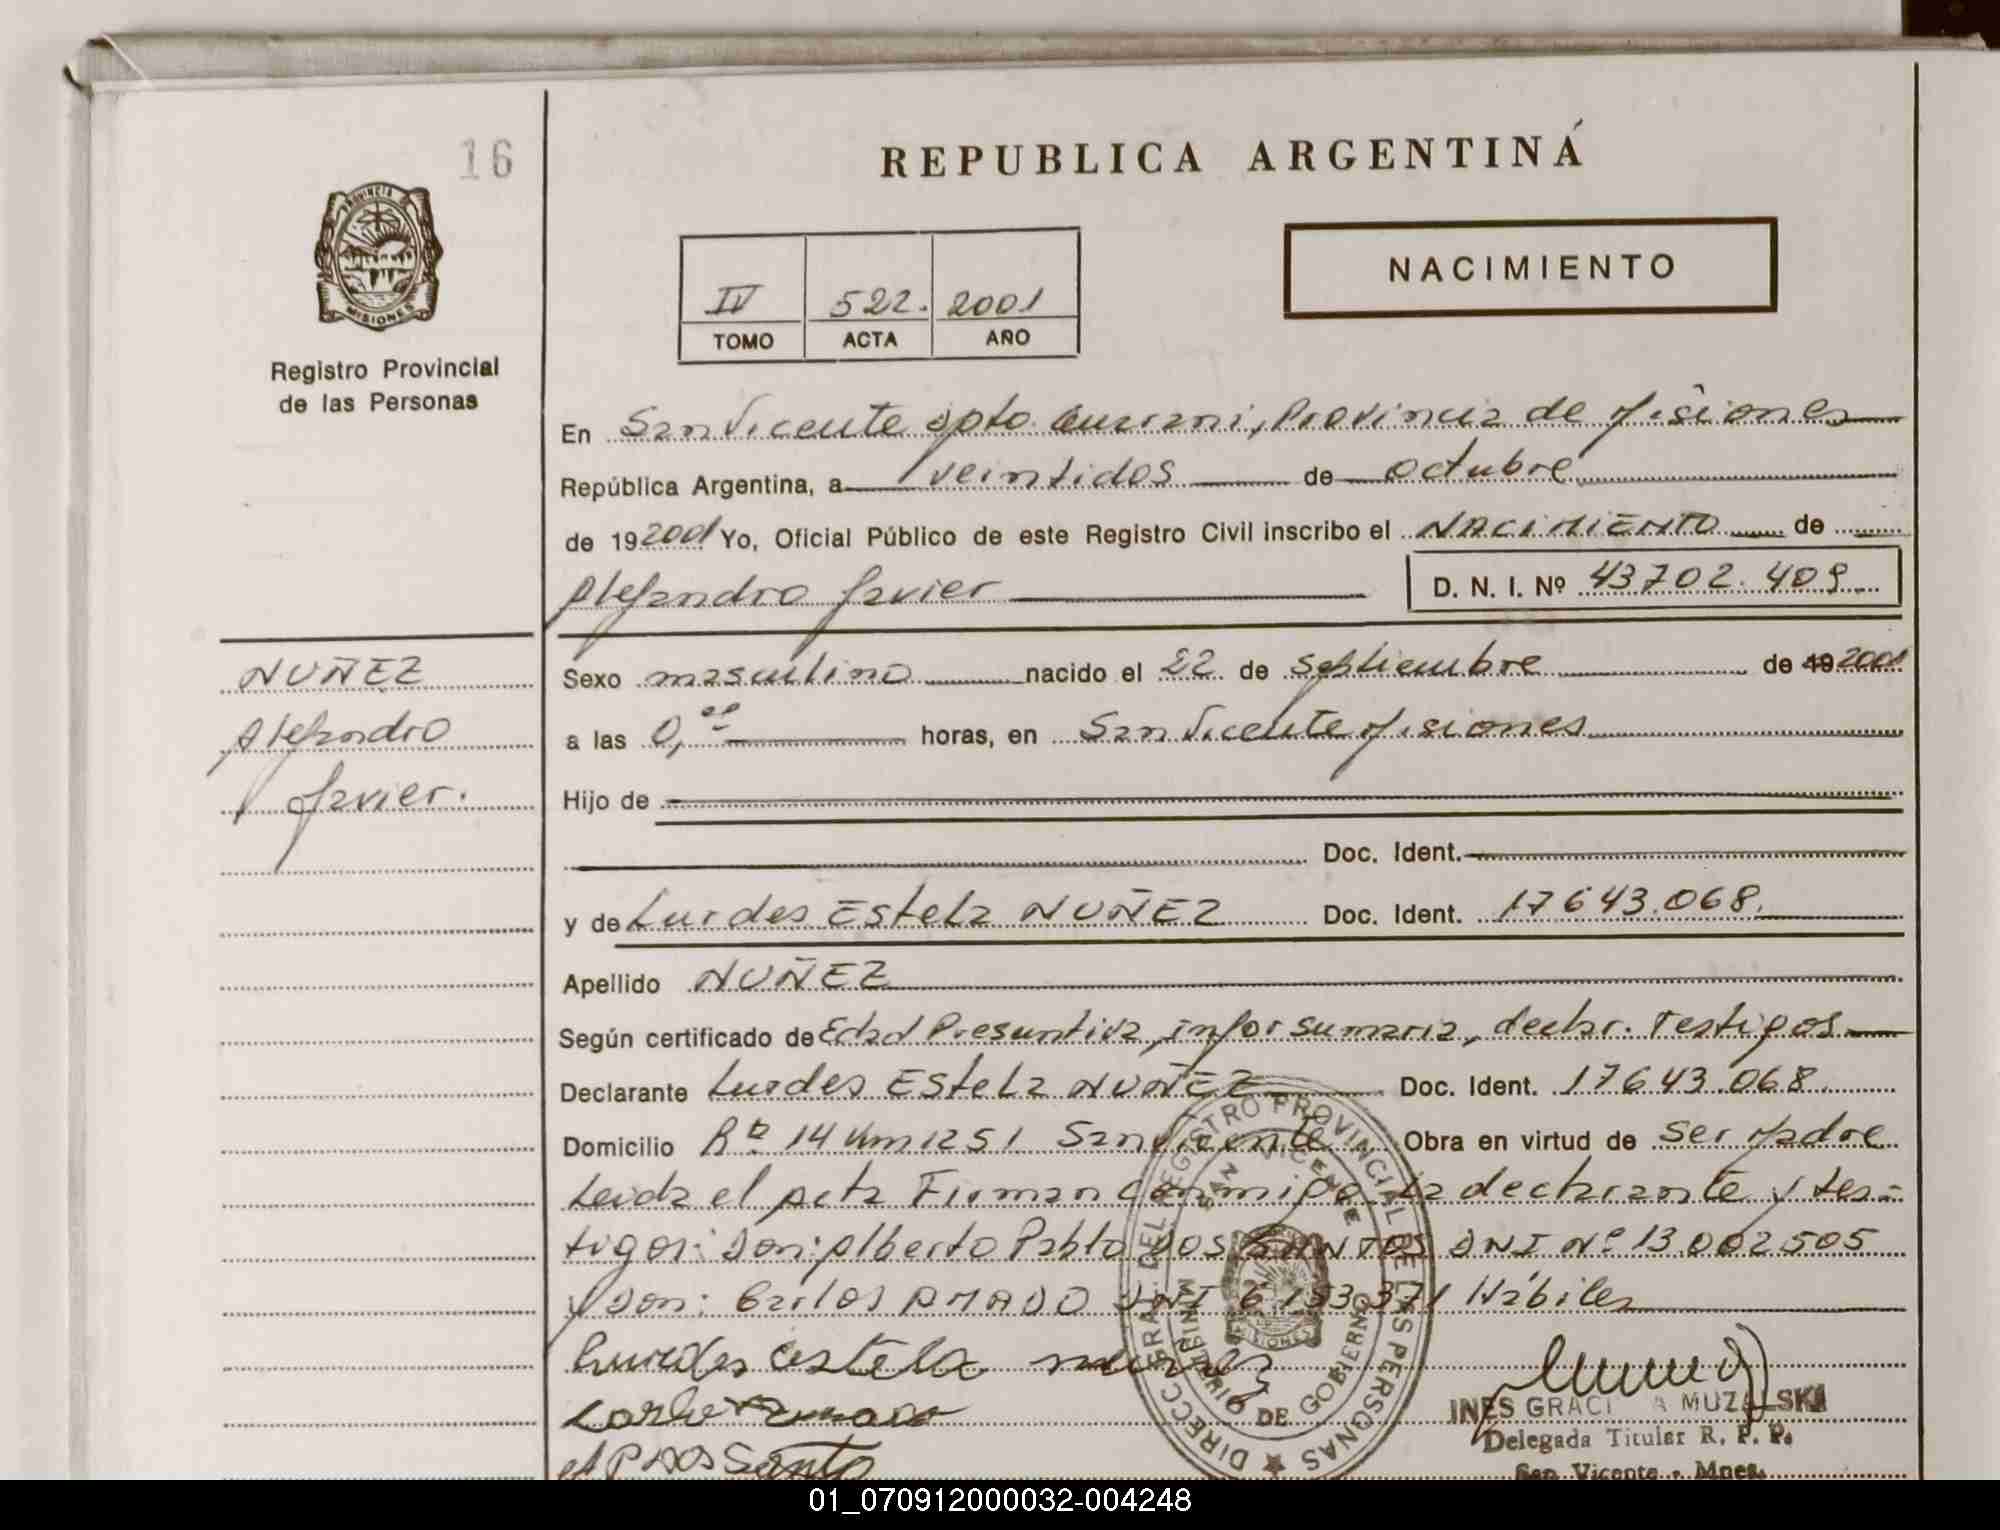 16
REPUBLICA ARGENTINA
PROVINCIA
MISIONES
Registro Provincial
de las Personas
IV 522. 2001
TOMO ACTA AÑO
NACIMIENTO
En San Vicente Dpto. Guaraní, Provincia de Misiones
República Argentina, a veintidos de octubre
de 19 2001 Yo, Oficial Público de este Registro Civil inscribo el NACIMIENTO de
Alejandro Javier D. N. I. Nº 43702.409
NUÑEZ
Alejandro
Javier.
Sexo masculino nacido el 22 de septiembre de 19 2001
a las 0,00 horas, en San Vicente Misiones
Hijo de
Doc. Ident.
y de Lurdes Estela NUÑEZ Doc. Ident. 17643.068.
Apellido NUÑEZ
Según certificado de Edad Presuntiva, infor sumaria, declar. Testigos
Declarante Lurdes Estela NUÑEZ Doc. Ident. 17643.068
Domicilio Rta 14 Km 1251 San Vicente Obra en virtud de ser Madre
Leida el Acta Firman conmigo la declarante y tes-
tigos: Don: Alberto Pablo DOS SANTOS DNI Nº 13.002505
y Don: Carlos AMADO DNI 6.153.371 Hábiles
Lurdes Estela Nuñez
Carlos Amado
A P Dos Santo
DIRECC. GRAL. DEL REGISTRO PROVINCIAL DE LAS PERSONAS
SAN VICENTE
MINISTERIO DE GOBIERNO
MISIONES
INES GRACI A MUZALSKI
Delegada Titular R. P. P.
San Vicente - Mnes.
01_070912000032-004248